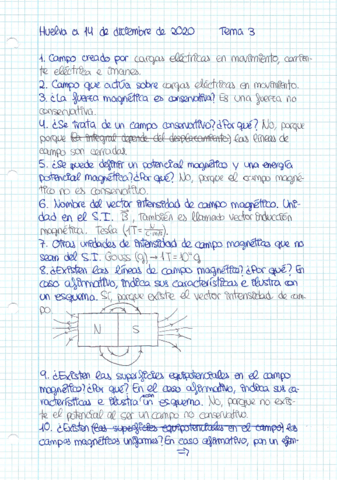 Huelva a 14 de diciembre de 2020 Tema 3
1. Campo creado por cargas eléctricas en movimiento, corrien-
te eléctrica e imanes.
2. Campo que actúa sobre cargas eléctricas en movimiento.
3. ¿La fuerza magnética es conservativa? Es una fuerza no
conservativa.
4. ¿Se trata de un campo conservativo? ¿Por qué? No, porque
porque la integral depende del desplazamiento) las líneas de
campo son cerradas.
5. ¿Se puede definir un potencial magnético y una energía
potencial magnética? ¿Por qué? No, porque el campo magné-
tico no es conservativo.
6. Nombre del vector intensidad de campo magnético. Uni-
dad en el S.I. B, también es llamado vector inducción
magnética. Tesla (1T=
7. Otras unidades de intensidad de campo magnético que no
sean del S.I. Gauss (g) → 1T = 10⁴ g
8. ¿Existen las líneas de campo magnético? ¿Por qué? En
caso afirmativo, indica sus características e ilustra con
un esquema. Sí, porque existe el vector intensidad de cam-
po
N S
9. ¿Existen las superficies equipotenciales en el campo
magnético? ¿Por qué? En el caso afirmativo, indica sus ca-
racterísticas e ilustra con un esquema. No, porque no exis-
te el potencial al ser un campo no conservativo.
10. ¿Existen (las superficies equipotenciales en el campo) los
campos magnéticos uniformes? En caso afirmativo, pon un ejem-
⇒